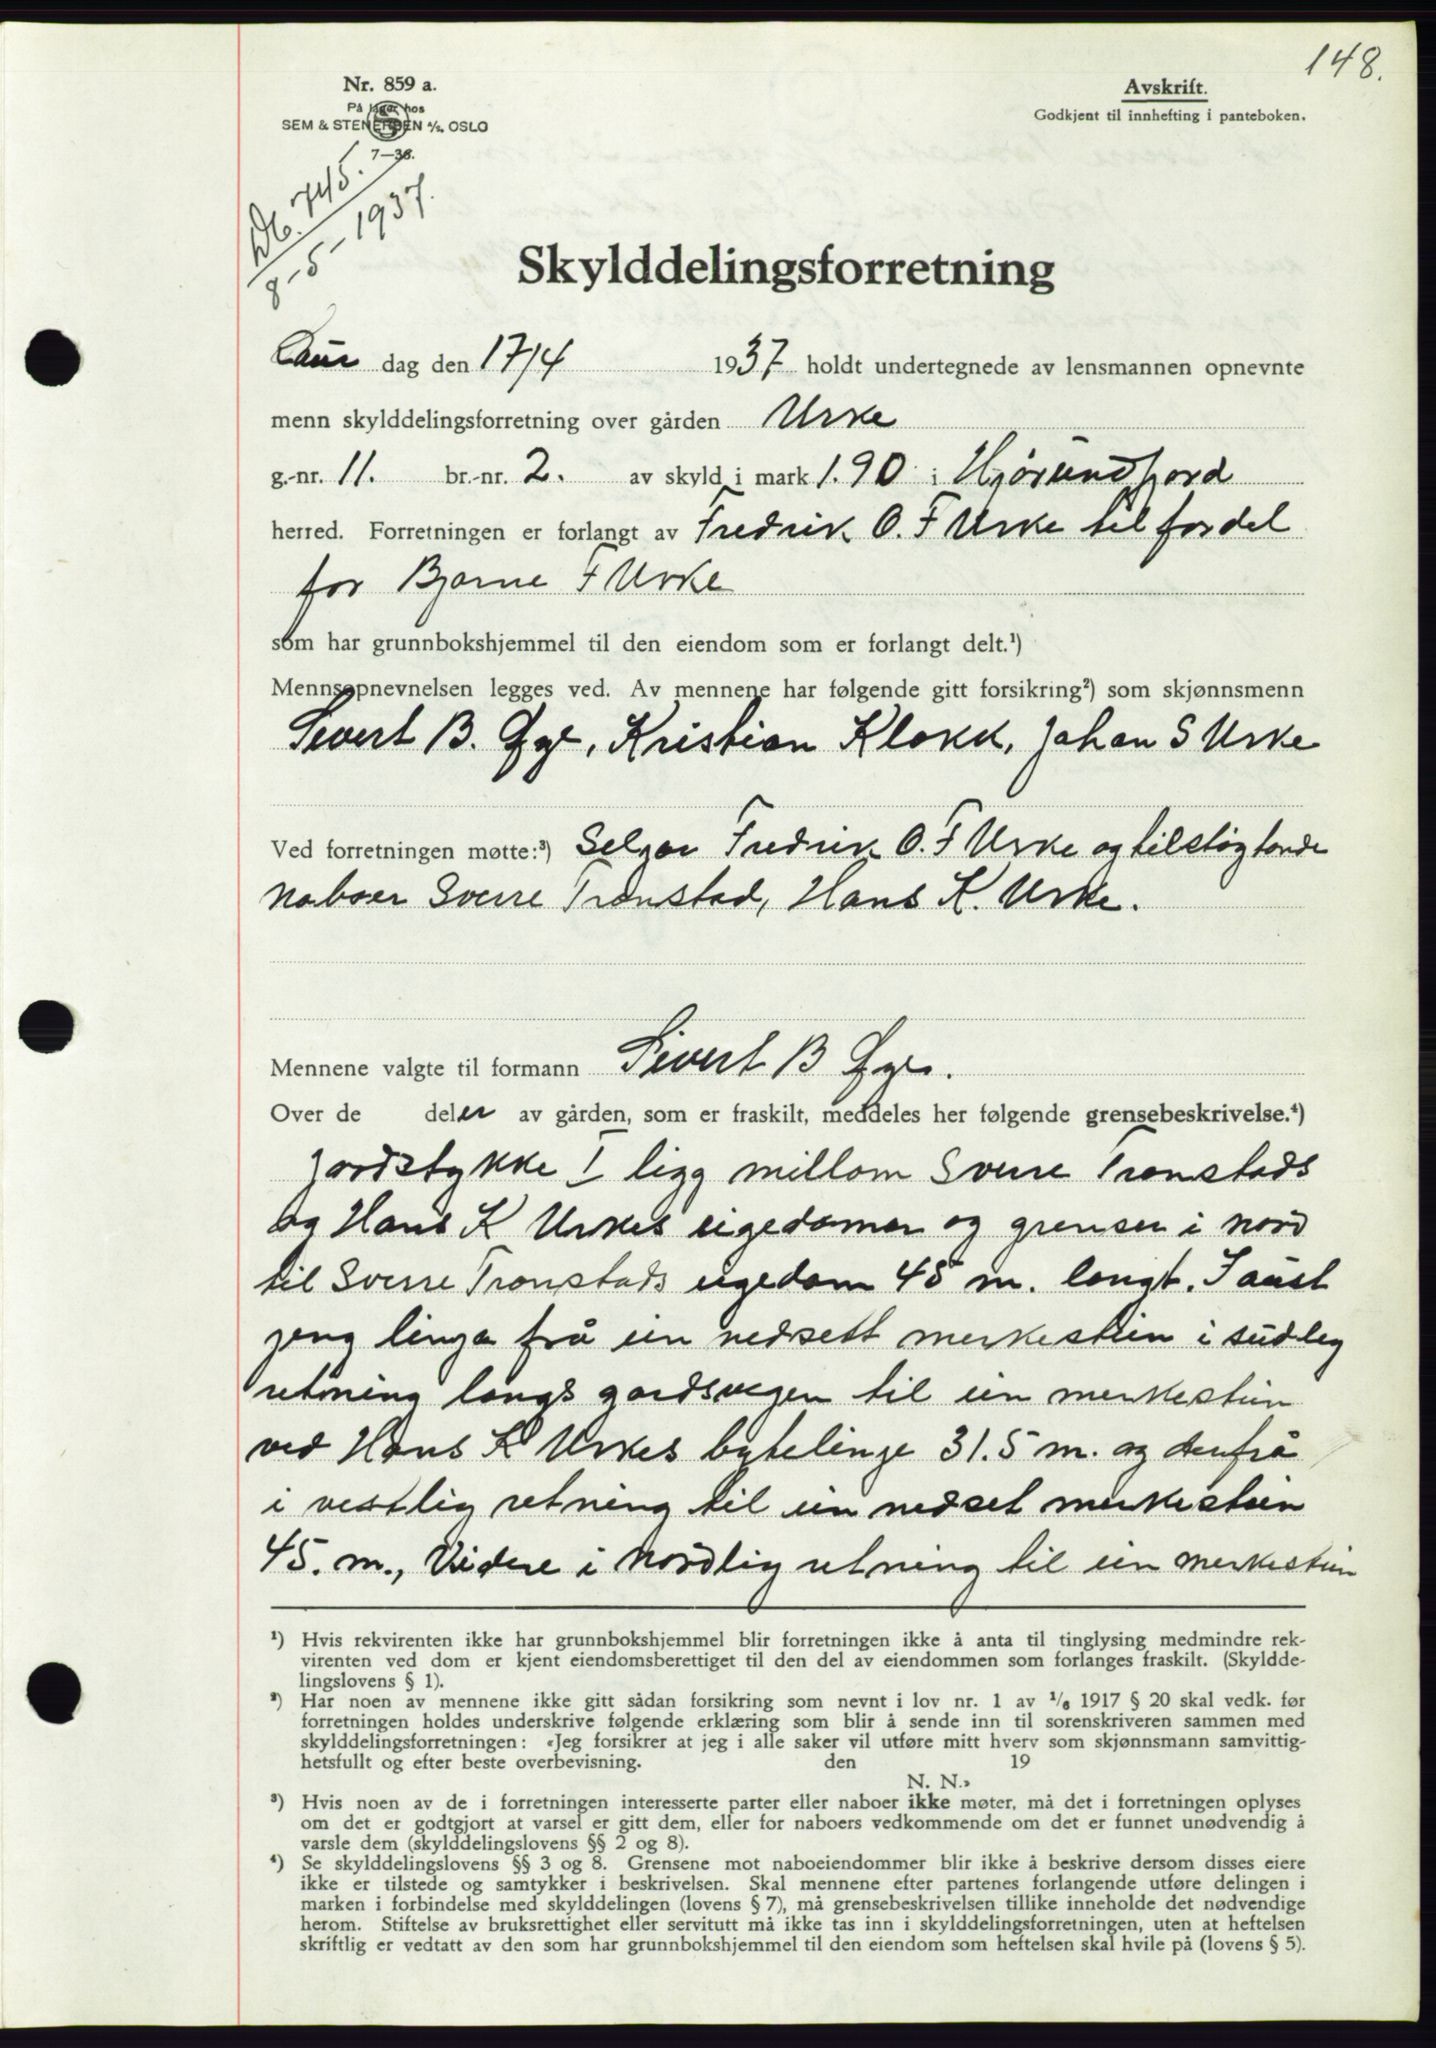 148.
Nr. 859 a.
På lager hos
SEM & STENERSEN A/S. OSLO
7—36.
Avskrift.
Godkjent til innhefting i panteboken.
Db. 745.
8-5-1937.
Skylddelingsforretning
Laur dag den 17/4 1937 holdt undertegnede av lensmannen opnevnte
menn skylddelingsforretning over gården Urke
g.-nr. 11. br.-nr. 2. av skyld i mark 1.90 i Hjørundfjord
herred. Forretningen er forlangt av Fredrik O. F Urke til fordel
for Bjarne F Urke
som har grunnbokshjemmel til den eiendom som er forlangt delt.¹)
Mennsopnevnelsen legges ved. Av mennene har følgende gitt forsikring²) som skjønnsmenn
Sivert B. Øye, Kristian Klokk, Johan S Urke
Ved forretningen møtte:³) Selgar Fredrik O. F Urke og tilstøytande
naboer Sverre Tronstad, Hans K. Urke.
Mennene valgte til formann Sivert B Øye.
Over de deler av gården, som er fraskilt, meddeles her følgende grensebeskrivelse.⁴)
Jordstykke I ligg millom Sverre Tronstads
og Hans K Urkes eigedomar og grenser i nord
til Sverre Tronstads eigedom 45 m. langt. I aust
jeng linja frå ein nedsett merkestein i sudleg
retning langs gardsvegen til ein merkestein
ved Hans K Urkes bytelinje 31.5 m. og derfrå
i vestlig retning til ein nedset merkestein
45. m., Videre i nordlig retning til ein merkestein
¹) Hvis rekvirenten ikke har grunnbokshjemmel blir forretningen ikke å anta til tinglysing medmindre rek-
virenten ved dom er kjent eiendomsberettiget til den del av eiendommen som forlanges fraskilt. (Skyldde-
lingslovens § 1).
²) Har noen av mennene ikke gitt sådan forsikring som nevnt i lov nr. 1 av ¹/₆ 1917 § 20 skal vedk. før
forretningen holdes underskrive følgende erklæring som blir å sende inn til sorenskriveren sammen med
skylddelingsforretningen: «Jeg forsikrer at jeg i alle saker vil utføre mitt hverv som skjønnsmann samvittig-
hetsfullt og efter beste overbevisning. den 19
N. N.»
³) Hvis noen av de i forretningen interesserte parter eller naboer ikke møter, må det i forretningen oplyses
om det er godtgjort at varsel er gitt dem, eller for naboers vedkommende om det er funnet unødvendig å
varsle dem (skylddelingslovens §§ 2 og 8).
⁴) Se skylddelingslovens §§ 3 og 8. Grensene mot naboeiendommer blir ikke å beskrive dersom disses eiere
ikke er tilstede og samtykker i beskrivelsen. Skal mennene efter partenes forlangende utføre delingen i
marken i forbindelse med skylddelingen (lovens § 7), må grensebeskrivelsen tillike inneholde det nødvendige
herom. Stiftelse av bruksrettighet eller servitutt må ikke tas inn i skylddelingsforretningen, uten at heftelsen
skriftlig er vedtatt av den som har grunnbokshjemmel til den eiendom som heftelsen skal hvile på (lovens § 5).